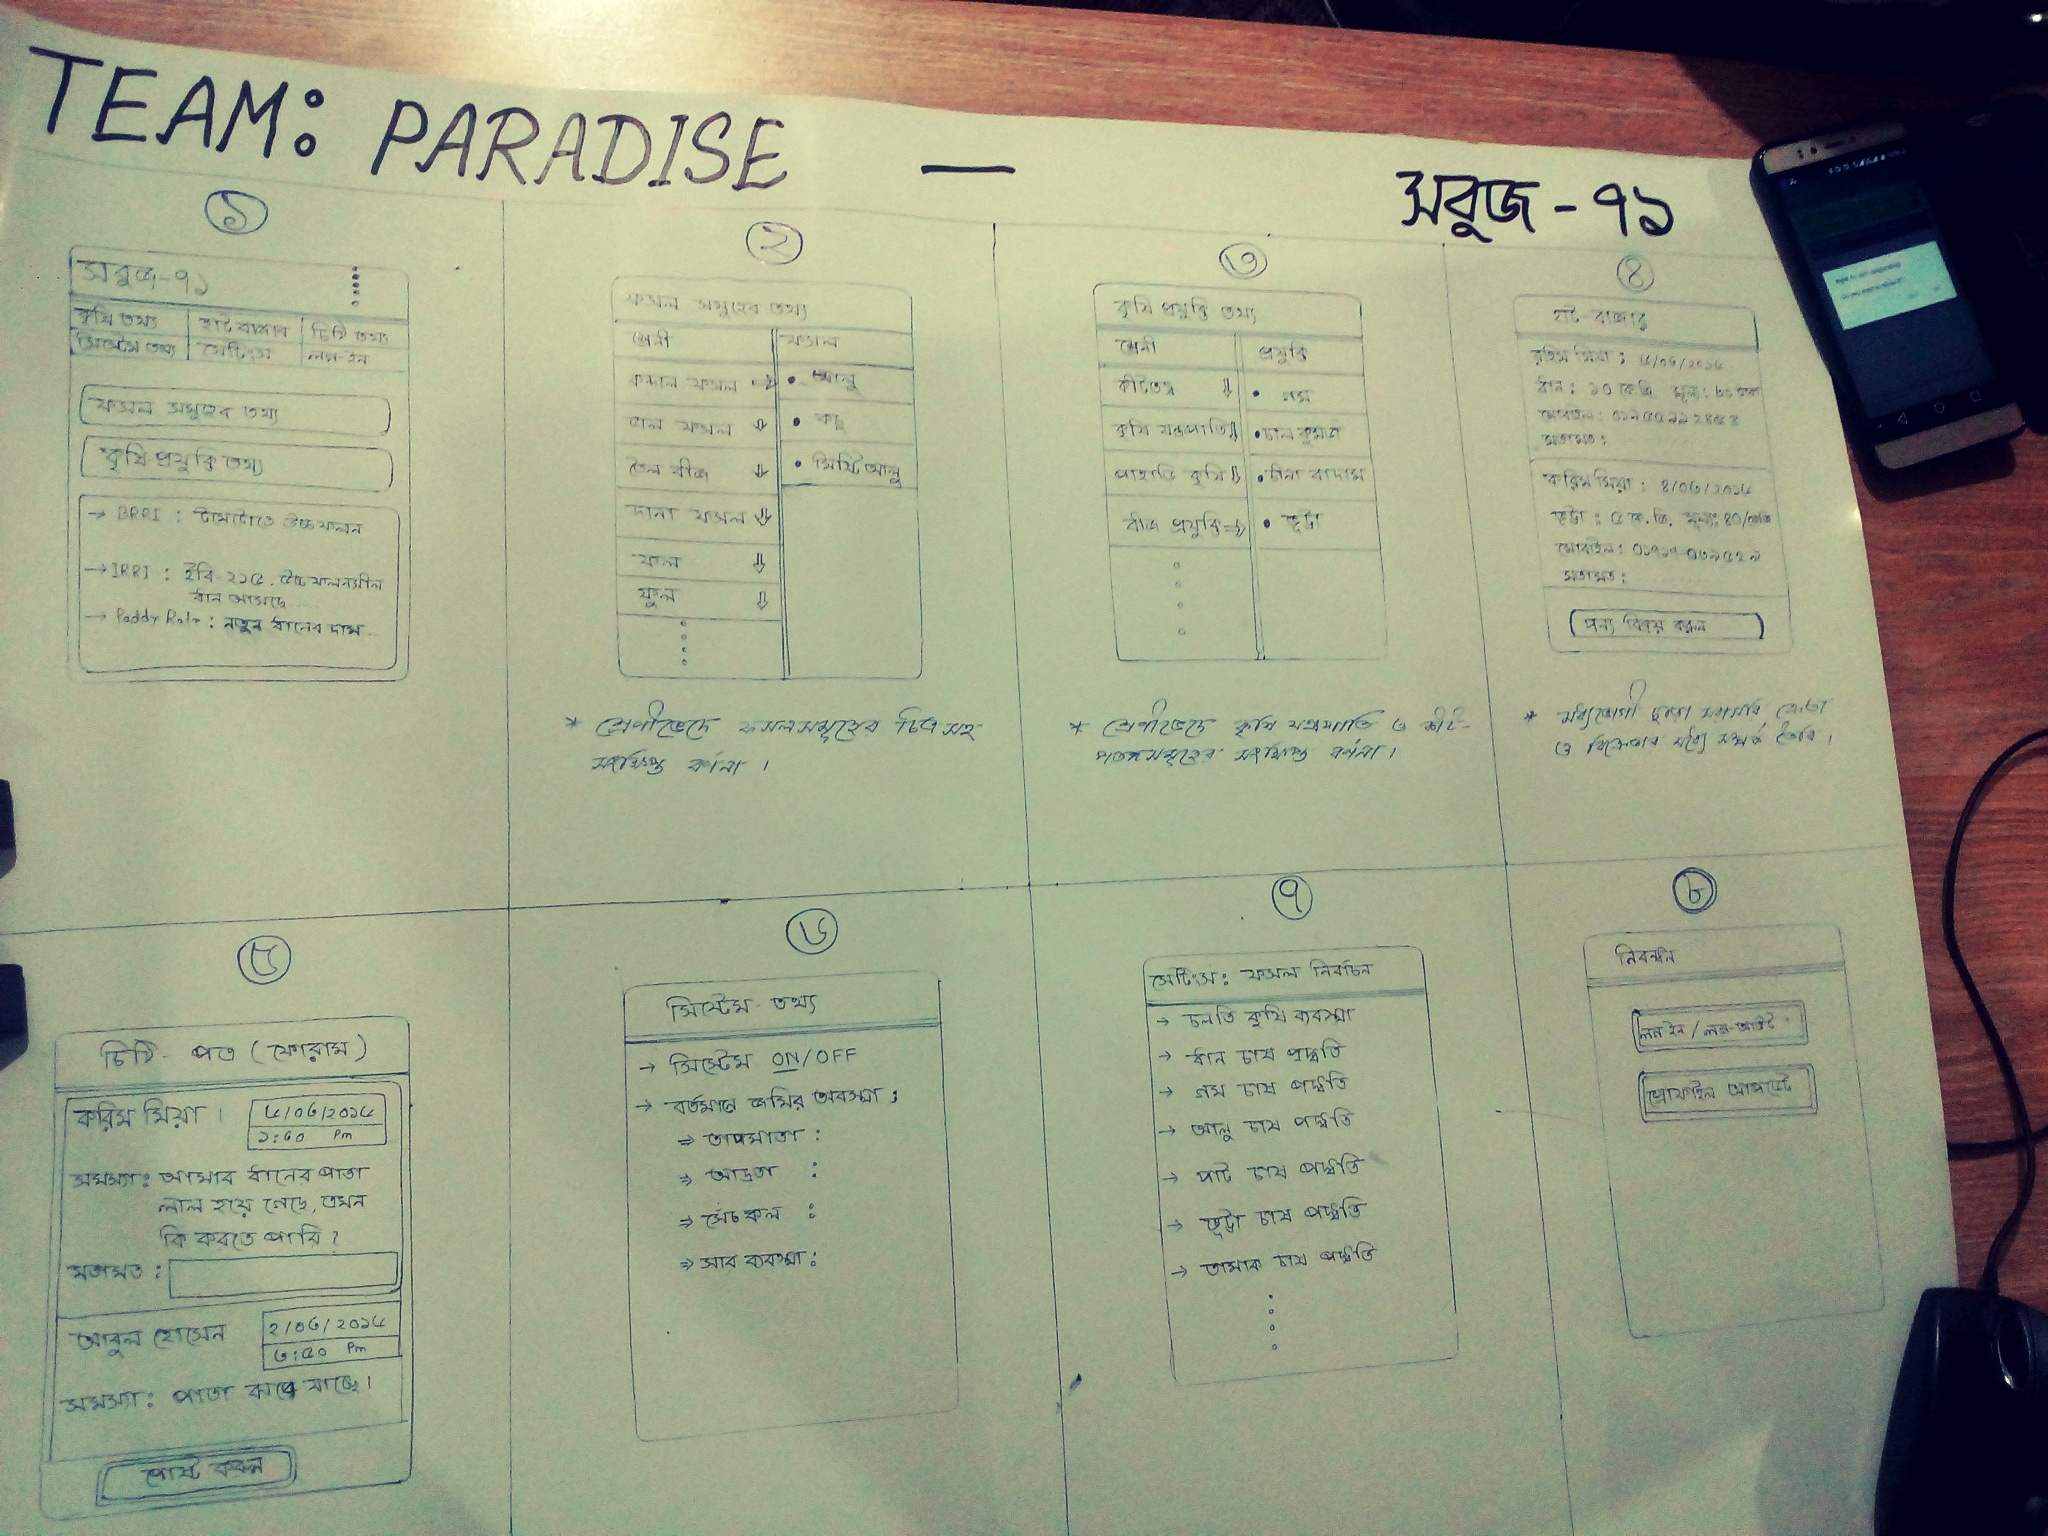 TEAM: PARADISE — সবুজ-৭১
১
সবুজ-৭১
কৃষি তথ্য হাট বাজার চিঠি তথ্য
সিস্টেম তথ্য সেটিংস লগ-ইন
ফসল সমূহের তথ্য
কৃষি প্রযুক্তি তথ্য
→ BRRI : টমেটোতে উচ্চ ফলন
→ IRRI : ইরি-২১৫. উচ্চ ফলনশীল
ধান আসছে.....
→ Paddy Rate : নতুন ধানের দাম...
২
ফসল সমূহের তথ্য
শ্রেনী ফসল
কন্দাল ফসল ⇒ • আলু
ডাল ফসল ⇓ • কচু
তৈল বীজ ⇓ • মিষ্টি আলু
দানা ফসল ⇓
ফল ⇓
ফুল ⇓
* শ্রেণীভেদে ফসলসমূহের চিত্র সহ
সংক্ষিপ্ত বর্ননা ।
৩
কৃষি প্রযুক্তি তথ্য
শ্রেনী প্রযুক্তি
কীটতত্ত্ব ⇓ • গম
কৃষি যন্ত্রপাতি ⇓ • চাল কুমড়া
পাহাড়ি কৃষি ⇓ • চীনা বাদাম
বীজ প্রযুক্তি ⇒ • ভূট্টা
* শ্রেণীভেদে কৃষি যন্ত্রপাতি ও কীট-
পতঙ্গসমূহের সংক্ষিপ্ত বর্ননা ।
৪
হাট-বাজার
রহিম মিয়া : ৫/০৬/২০১৬
ধান : ১০ কেজি. মূল্য:
মোবাইল :
মতামত :
করিম মিয়া : ৪/০৬/২০১৬
ভূট্টা : ৫ কে.জি. মূল্য: ৪০/কেজি
মোবাইল :
মতামত :
পন্য বিক্রয় করুন
* মধ্যভোগী ছাড়া সরাসরি ক্রেতা
ও বিক্রেতার মধ্যে সম্পর্ক তৈরি ।
৫
চিঠি-পত্র (ফোরাম)
করিম মিয়া । ৫/০৬/২০১৬
Pm
সমস্যা : আমার ধানের পাতা
লাল হয়ে গেছে, এখন
কি করতে পারি ?
মতামত :
আবুল হোসেন ২/০৬/২০১৬
৩:৫০ Pm
সমস্যা : পাতা ঝরে যাচ্ছে।
পোষ্ট করুন
৬
সিস্টেম তথ্য
→ সিস্টেম ON/OFF
→ বর্তমানে জমির অবস্থা :
⇒ তাপমাত্রা :
⇒ আদ্রতা :
⇒ সেঁচকল :
⇒ সার ব্যবস্থা :
৭
সেটিংস : ফসল নির্বাচন
→ চলতি কৃষি ব্যবস্থা
→ ধান চাষ পদ্ধতি
→ গম চাষ পদ্ধতি
→ আলু চাষ পদ্ধতি
→ পাট চাষ পদ্ধতি
→ ভূট্টা চাষ পদ্ধতি
→ তামাক চাষ পদ্ধতি
৮
নিবন্ধন
লগ ইন / লগ-আউট
প্রোফাইল আপডেট